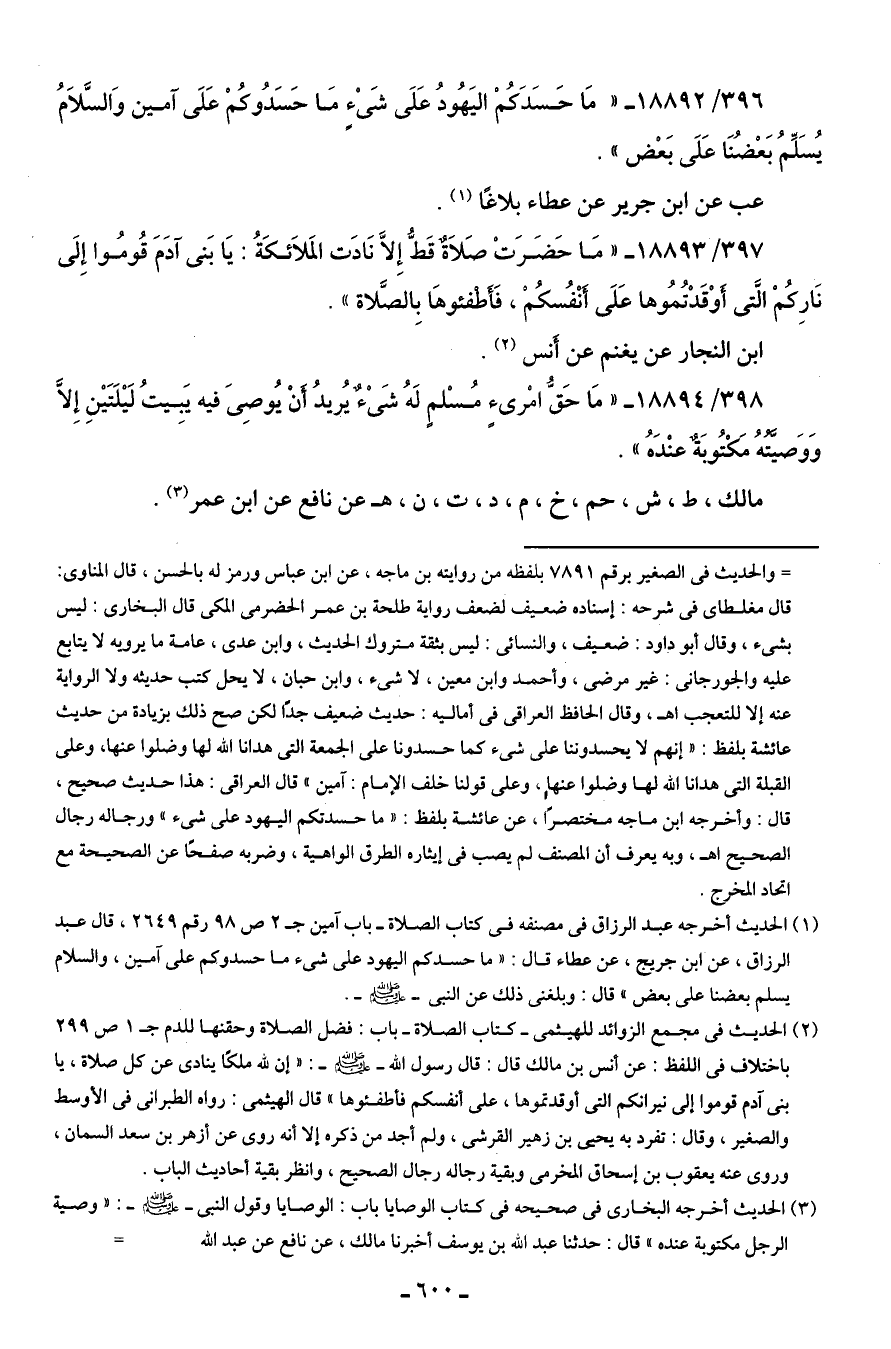 ٣٩٦/ ١٨٨٩٢ـ « مَا حَـسَدَكُمْ اليَهُودُ عَلَى شَىْءٍ مَـا حَسَدُوكُمْ عَلَى آمـين وَالسَّلاَمُ
يُسَلِّمُ بَعْضُنَا عَلَى بَعْض » .
عب عن ابن جرير عن عطاء بلاغًا (١) .
٣٩٧/ ١٨٨٩٣ـ « مَـا حَضَـرَتْ صَلاَةٌ قَطُّ إِلاَّ نَادَت المَلاَئـكَةُ : يَا بَنى آدَمَ قُومُـوا إِلَى
نَارِكُمْ الَّتى أَوْقَدْتُمُوها عَلَى أَنْفُسكُمْ ، فَأَطْفئوهَا بِالصَّلاة » .
ابن النجار عن يغنم عن أَنس (٢) .
٣٩٨/ ١٨٨٩٤ـ « مَا حَقُّ امْرىءٍ مُـسْلمٍ لَهُ شَىْءٌ يُريدُ أَنْ يُوصِىَ فيه يَبِـيتُ لَيْلَتَيْنِ إِلاَّ
وَوَصيَّتُهُ مَكْتُوبَةٌ عنْدَهُ » .
مالك ، ط ، ش ، حم ، خ ، م ، د ، ت ، ن ، هـ عن نافع عن ابن عمر(٣) .
= والحديث فى الصغير برقم ٧٨٩١ بلفظه من روايته بن ماجه ، عن ابن عباس ورمز له بالحسن ، قال المناوى:
قال مغلـطاى فى شرحه : إسناده ضعـيف لضعف رواية طلحة بن عمـر الحضرمى المكى قال البـخارى : ليس
بشىء ، وقال أبو داود : ضعـيف ، والنسائى : ليس بثقة متـروك الحديث ، وابن عدى ، عامـة ما يرويه لا يتابع
عليه والجورجانى : غير مرضى ، وأحمـد وابن معين ، لا شىء ، وابن حبان ، لا يحل كتب حديثه ولا الرواية
عنه إلا للتعجب اهـ ، وقال الحافظ العراقى فى أماليه : حديث ضعيف جدًا لكن صح ذلك بزيادة من حديث
عائشة بلفظ : « إنهم لا يحسدوننا على شىء كما حـسدونا على الجمعة التى هدانا الله لها وضلوا عنها، وعلى
القبلة التى هدانا الله لهـا وضلوا عنها، وعلى قولنا خلف الإمـام : آمين » قال العراقى : هذا حـديث صحيح ،
قال : وأخـرجه ابن مـاجه مـختصـرًا ، عن عائشـة بلفظ : « ما حـسدتكم اليـهود على شىء » ورجـاله رجال
الصحـيح اهـ ، وبه يعرف أن المصنف لم يصب فى إيثاره الطرق الواهـية ، وضربه صفـحًا عن الصحيـحة مع
اتحاد المخرج .
(١) الحديث أخـرجه عبـد الرزاق فى مصنفه فـى كتاب الصـلاة ـ باب آمين جـ ٢ ص ٩٨ رقم ٢٦٤٩ ، قال عبـد
الرزاق ، عن ابن جريج ، عن عطاء قـال : « ما حسـدكم اليهود على شىء مـا حسدوكم على آمـين ، والسلام
يسلم بعضنا على بعض » قال : وبلغنى ذلك عن النبى ـ ﷺ ـ .
(٢) الحديـث فى مجـمع الزوائد للهيـثمى ـ كـتاب الصـلاة ـ باب : فضل الصلاة وحقنهـا للدم جـ ١ ص ٢٩٩
باختلاف فى اللفظ : عن أنس بن مالك قال : قال رسول الله ـ ﷺ ـ : « إن لله ملكًا ينادى عن كل صلاة ، يا
بنى آدم قوموا إلى نيرانكم التى أوقدتموها ، على أنفسكم فأطفـئوها » قال الهيثمى : رواه الطبرانى فى الأوسط
والصغير ، وقال : تفرد به يحيى بن زهير القرشى ، ولم أجد من ذكره إلا أنه روى عن أزهر بن سعد السمان ،
وروى عنه يعقوب بن إسحاق المخرمى وبقية رجاله رجال الصحيح ، وانظر بقية أحاديث الباب .
(٣) الحديث أخـرجه البخارى فى صحـيحه فى كـتاب الوصايا باب : الوصـايا وقول النبى ـ ﷺ ـ : « وصـية
الرجل مكتوبة عنده » قال : حدثنا عبد الله بن يوسف أخبرنا مالك ، عن نافع عن عبد الله =
ـ ٦٠٠ ـ